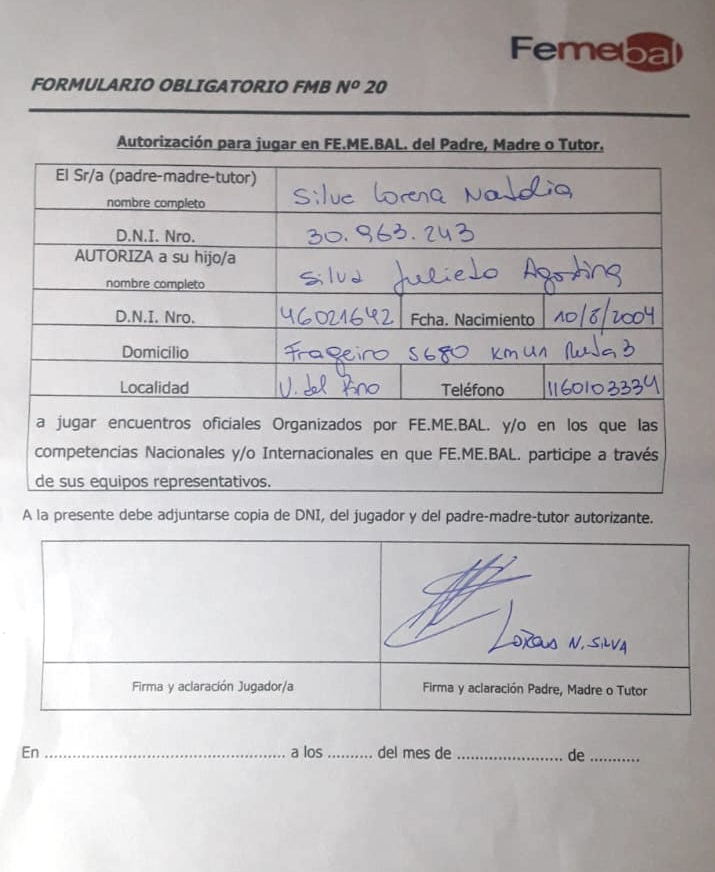 Femebal
FORMULARIO OBLIGATORIO FMB Nº 20
Autorización para jugar en FE.ME.BAL. del Padre, Madre o Tutor.
El Sr/a (padre-madre-tutor)
nombre completo
Silva Lorena Natalia
D.N.I. Nro.
30.963.243
AUTORIZA a su hijo/a
nombre completo
Silva Julieta Agostina
D.N.I. Nro.
46021642
Fcha. Nacimiento
10/8/2004
Domicilio
5680 km un Ruta 3
Localidad
V. del Pino
Teléfono
1160103334
a jugar encuentros oficiales Organizados por FE.ME.BAL. y/o en los que las
competencias Nacionales y/o Internacionales en que FE.ME.BAL. participe a través
de sus equipos representativos.
A la presente debe adjuntarse copia de DNI, del jugador y del padre-madre-tutor autorizante.
Lorena N. SILVA
Firma y aclaración Jugador/a
Firma y aclaración Padre, Madre o Tutor
En ................................................. a los .......... del mes de ....................... de ...........